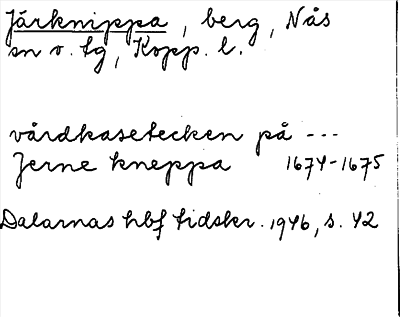 Järknippa, berg, Nås
sn o. tg, Kopp. l.
vårdkasetecken på ---
Jerne kneppa 1674-1675
Dalarnas hbf tidskr. 1946, s. 42